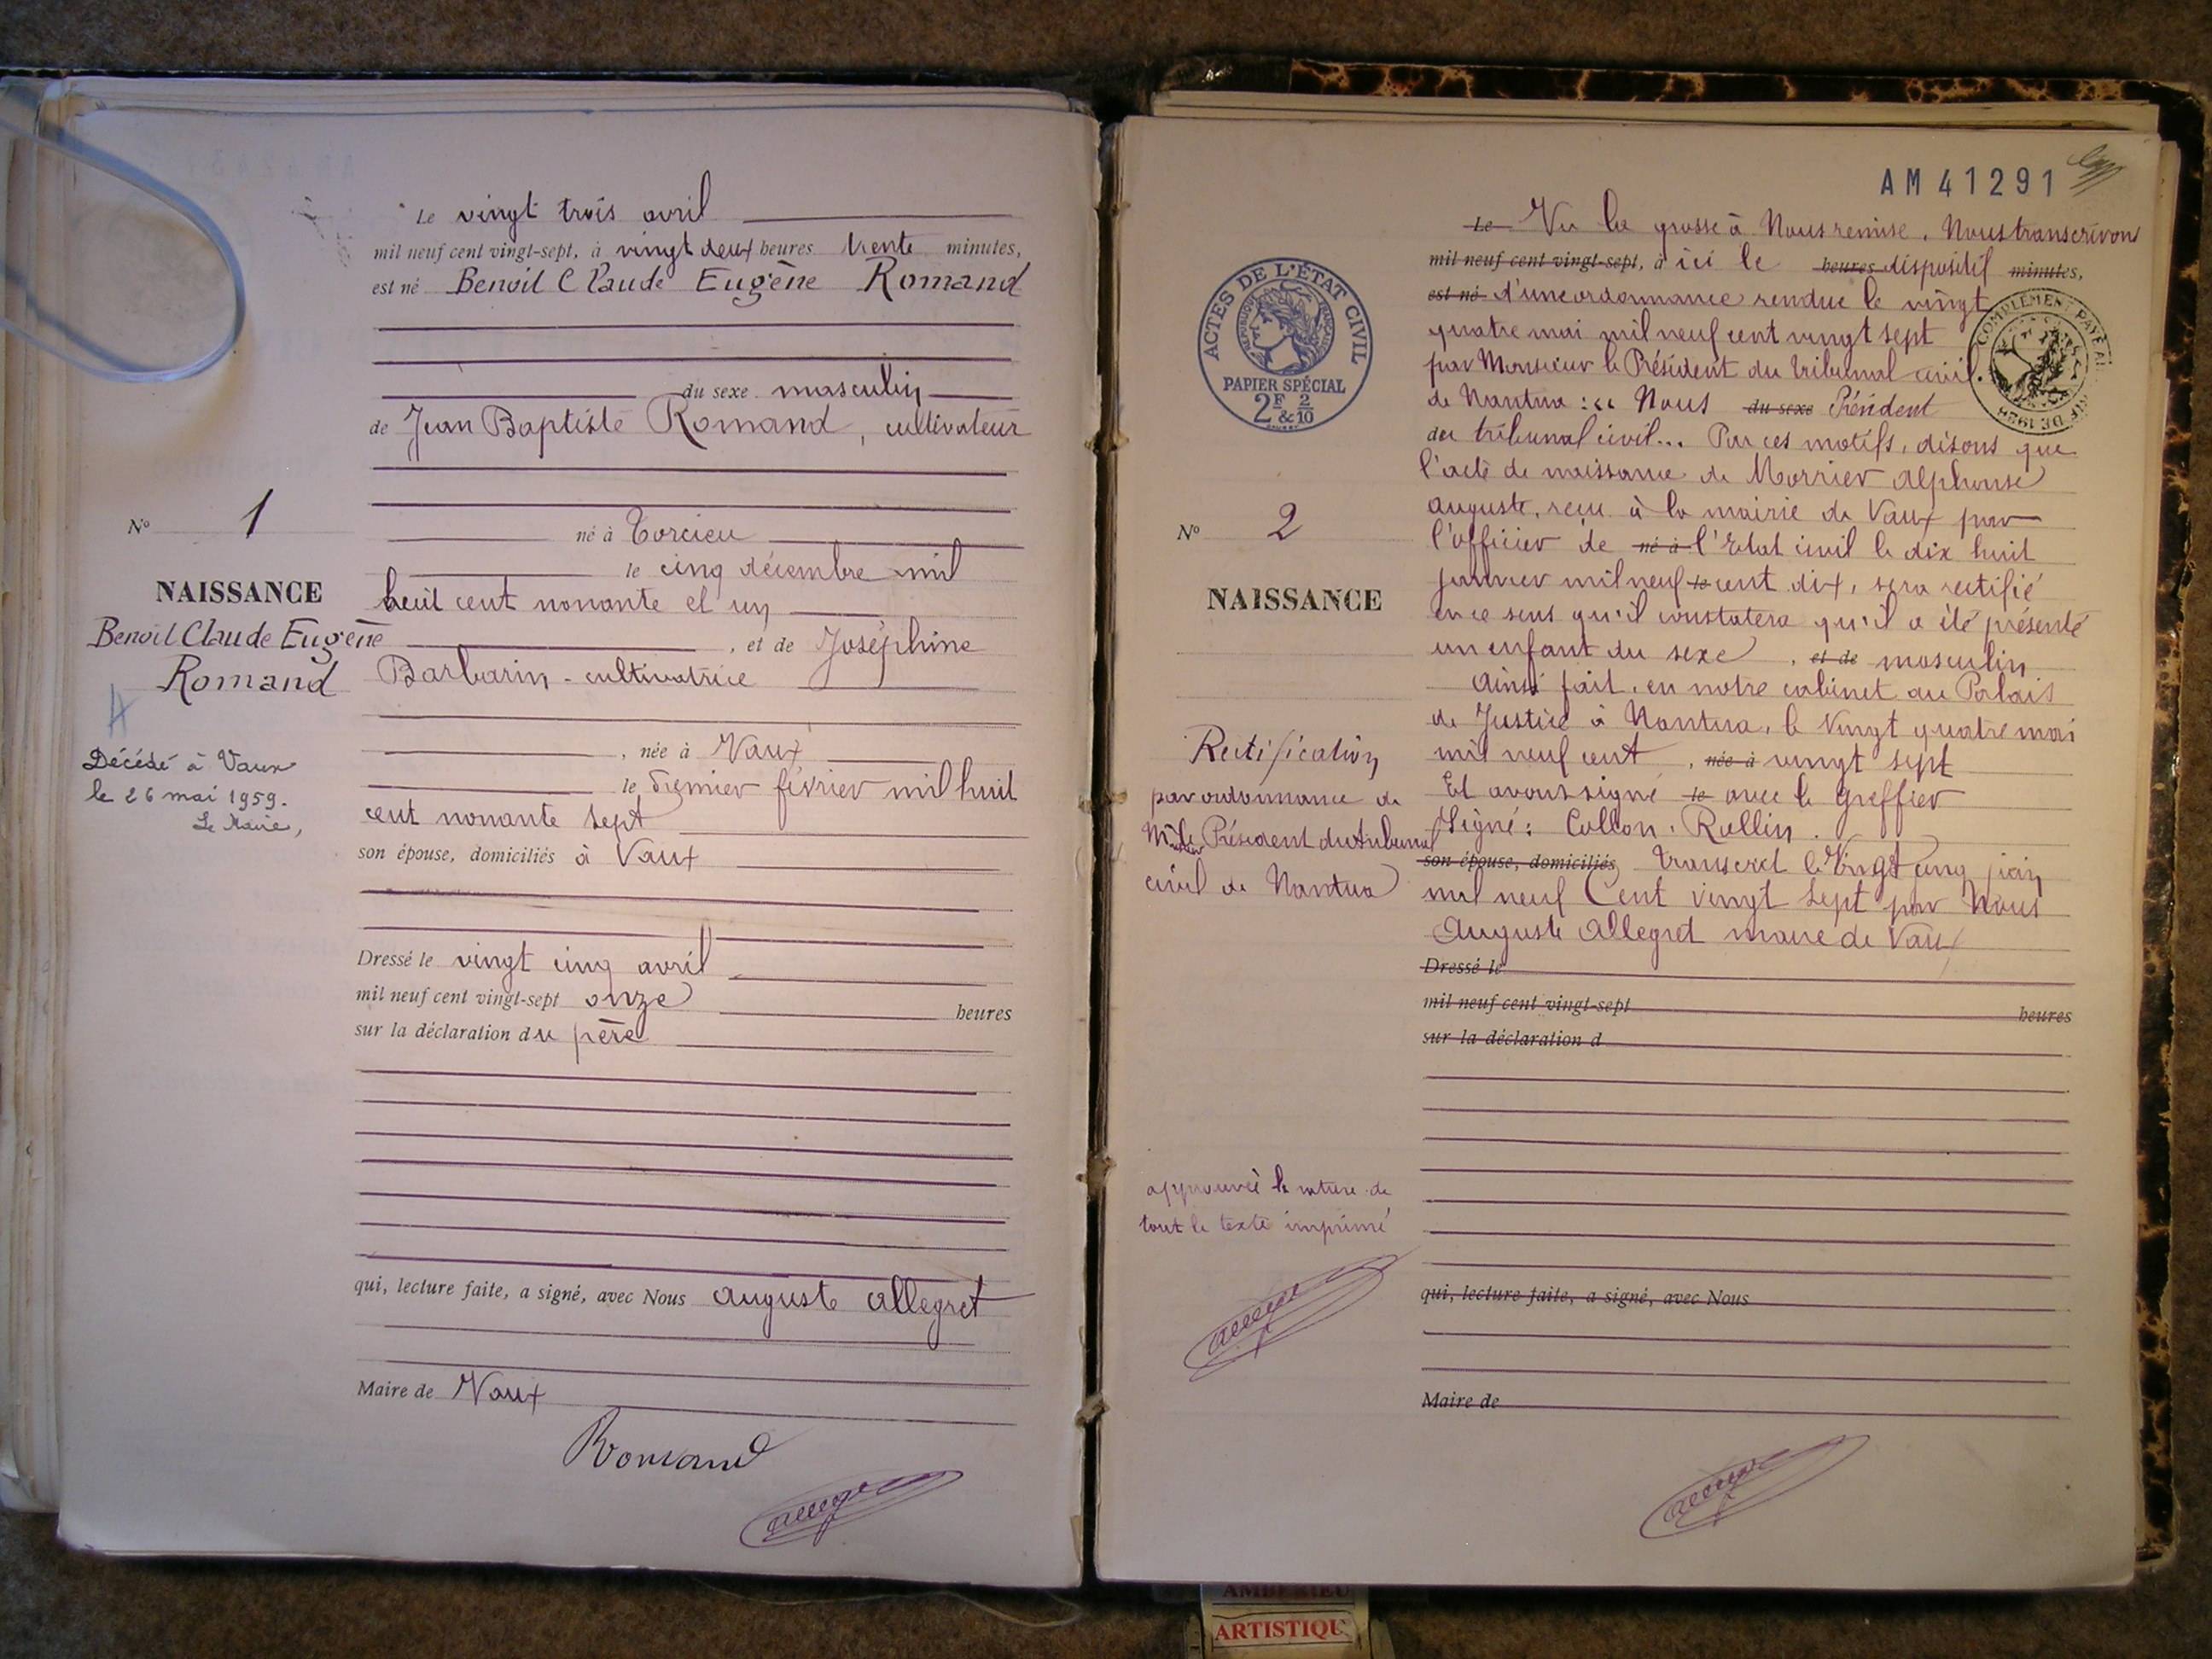 Le vingt trois avril
mil neuf cent vingt-sept, à vingt deux heures trente minutes,
est né Benoit Claude Eugène Romand
du sexe masculin
de Jean Baptiste Romand, cultivateur
né à Torcieu
le cinq décembre mil
huit cent nonante et un
, et de Joséphine
Barbarin - cultivatrice
, née à Vaux
le premier février mil huit
cent nonante sept
son épouse, domiciliés à Vaux
Dressé le vingt cinq avril
mil neuf cent vingt-sept onze heures
sur la déclaration du père
qui, lecture faite, a signé, avec Nous auguste allegret
Maire de Vaux
Romand
N° 1
NAISSANCE
Benoit Claude Eugène
Romand
Décédé à Vaux
le 26 mai 1959.
Le Maire,
AM 41291
ACTES DE L'ÉTAT CIVIL
RÉPUBLIQUE FRANÇAISE
PAPIER SPÉCIAL
2F & 2/10
COMPLÉMENT PAYÉ AU TARIF DE 1926
N° 2
NAISSANCE
Rectification
par ordonnance de
Mr le Président du tribunal
civil de Nantua
approuvée la rature de
tout le texte imprimé
Le Vu la grosse à Nous remise, Nous transcrivons
mil neuf cent vingt-sept, à ici le heures dispositif minutes,
est né d'une ordonnance rendue le vingt
quatre mai mil neuf cent vingt sept
par Monsieur le Président du tribunal civil
de Nantua : "Nous du sexe Président
du tribunal civil... Par ces motifs, disons que
l'acte de naissance de Morrier alphonse
auguste, reçu à la mairie de Vaux par
l'officier de né à l'Etat civil le dix huit
janvier mil neuf le cent dix, sera rectifié
en ce sens qu'il constatera qu'il a été présenté
un enfant du sexe, et de masculin
ainsi fait, en notre cabinet au Palais
de Justice à Nantua, le vingt quatre mai
mil neuf cent, née à vingt sept
Et avons signé le avec le greffier
Signé: Collon, Rullin.
son épouse, domiciliés transcrit le Vingt cinq juin
mil neuf Cent vingt sept par Nous
Auguste Allegret maire de Vaux
Dressé le
mil neuf cent vingt-sept heures
sur la déclaration d
qui, lecture faite, a signé, avec Nous
Maire de
AMBERIEU
ARTISTIQU